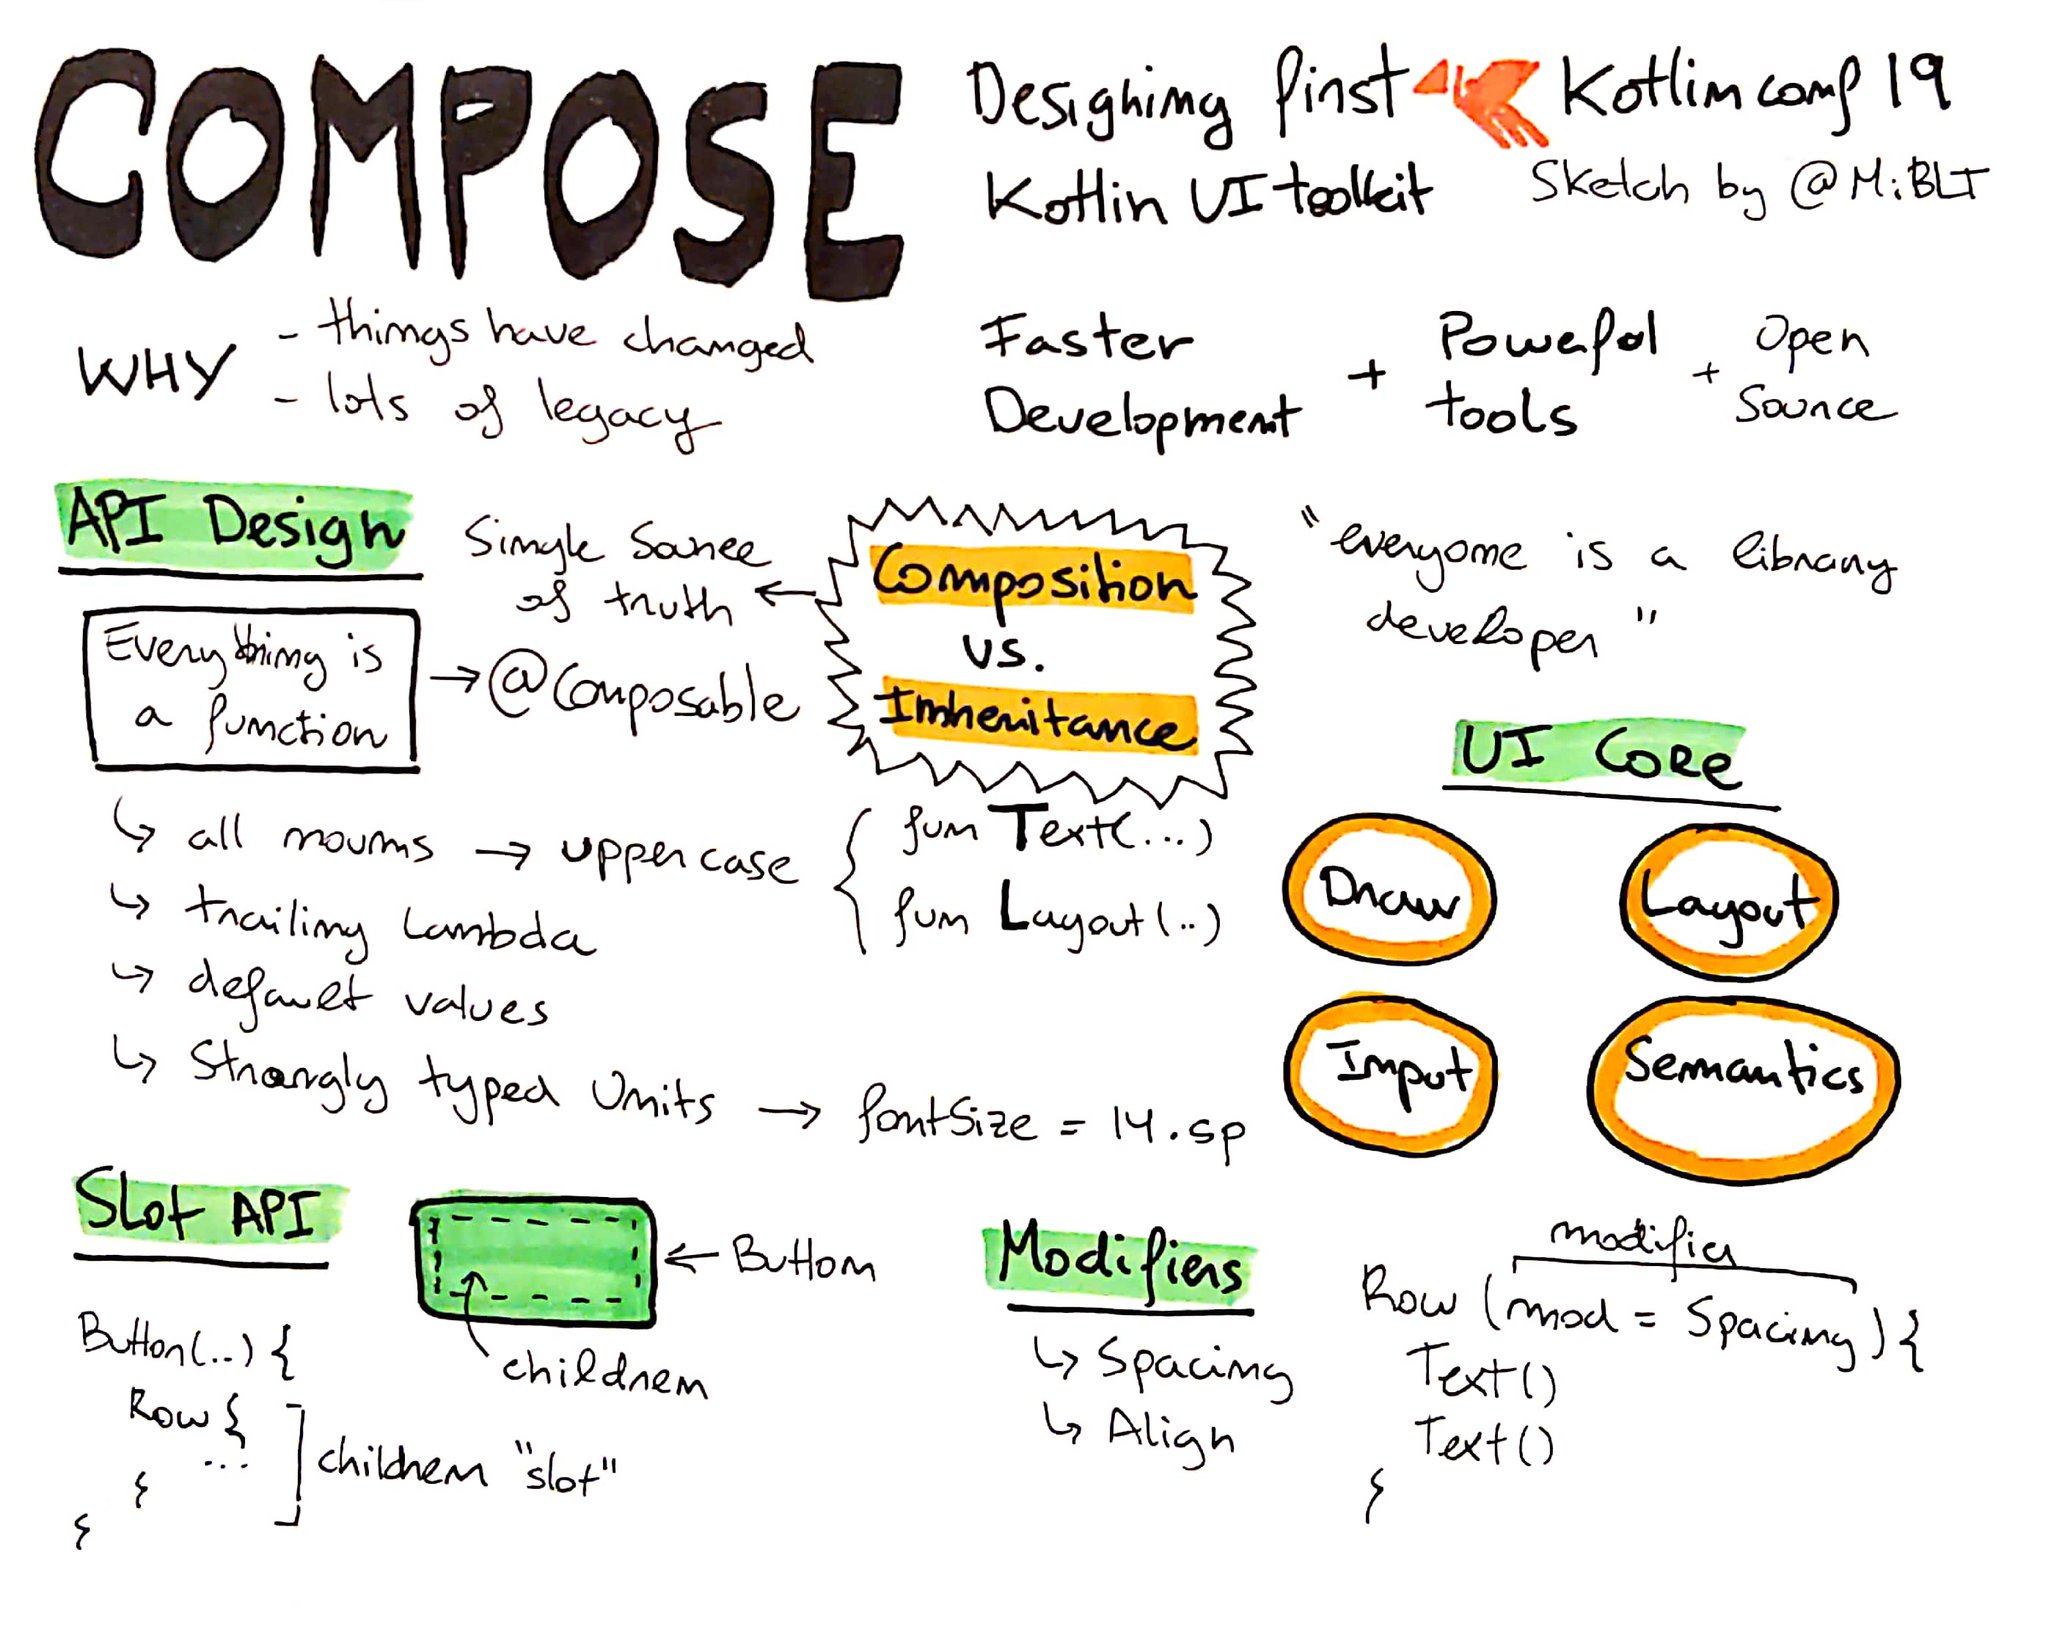 COMPOSE
Designing first
Kotlin UI toolkit
Kotlin conf 19
Sketch by @MiBLT
WHY
- things have changed
- lots of legacy
Faster
Development
+
Powerful
tools
+
Open
Source
API Design
Everything is
a function
→ @Composable
Single Source
of truth
←
Composition
vs.
Inheritance
"everyone is a library
developer"
↳ all nouns → uppercase {
fun Text(...)
fun Layout(..)
↳ trailing lambda
↳ default values
↳ Strongly typed Units → fontSize = 14.sp
UI Core
Draw
Layout
Input
Semantics
Slot API
← Button
children
Button(..) {
Row {
...
}
}
children "slot"
Modifiers
↳ Spacing
↳ Align
modifier
Row (mod = Spacing) {
Text()
Text()
}